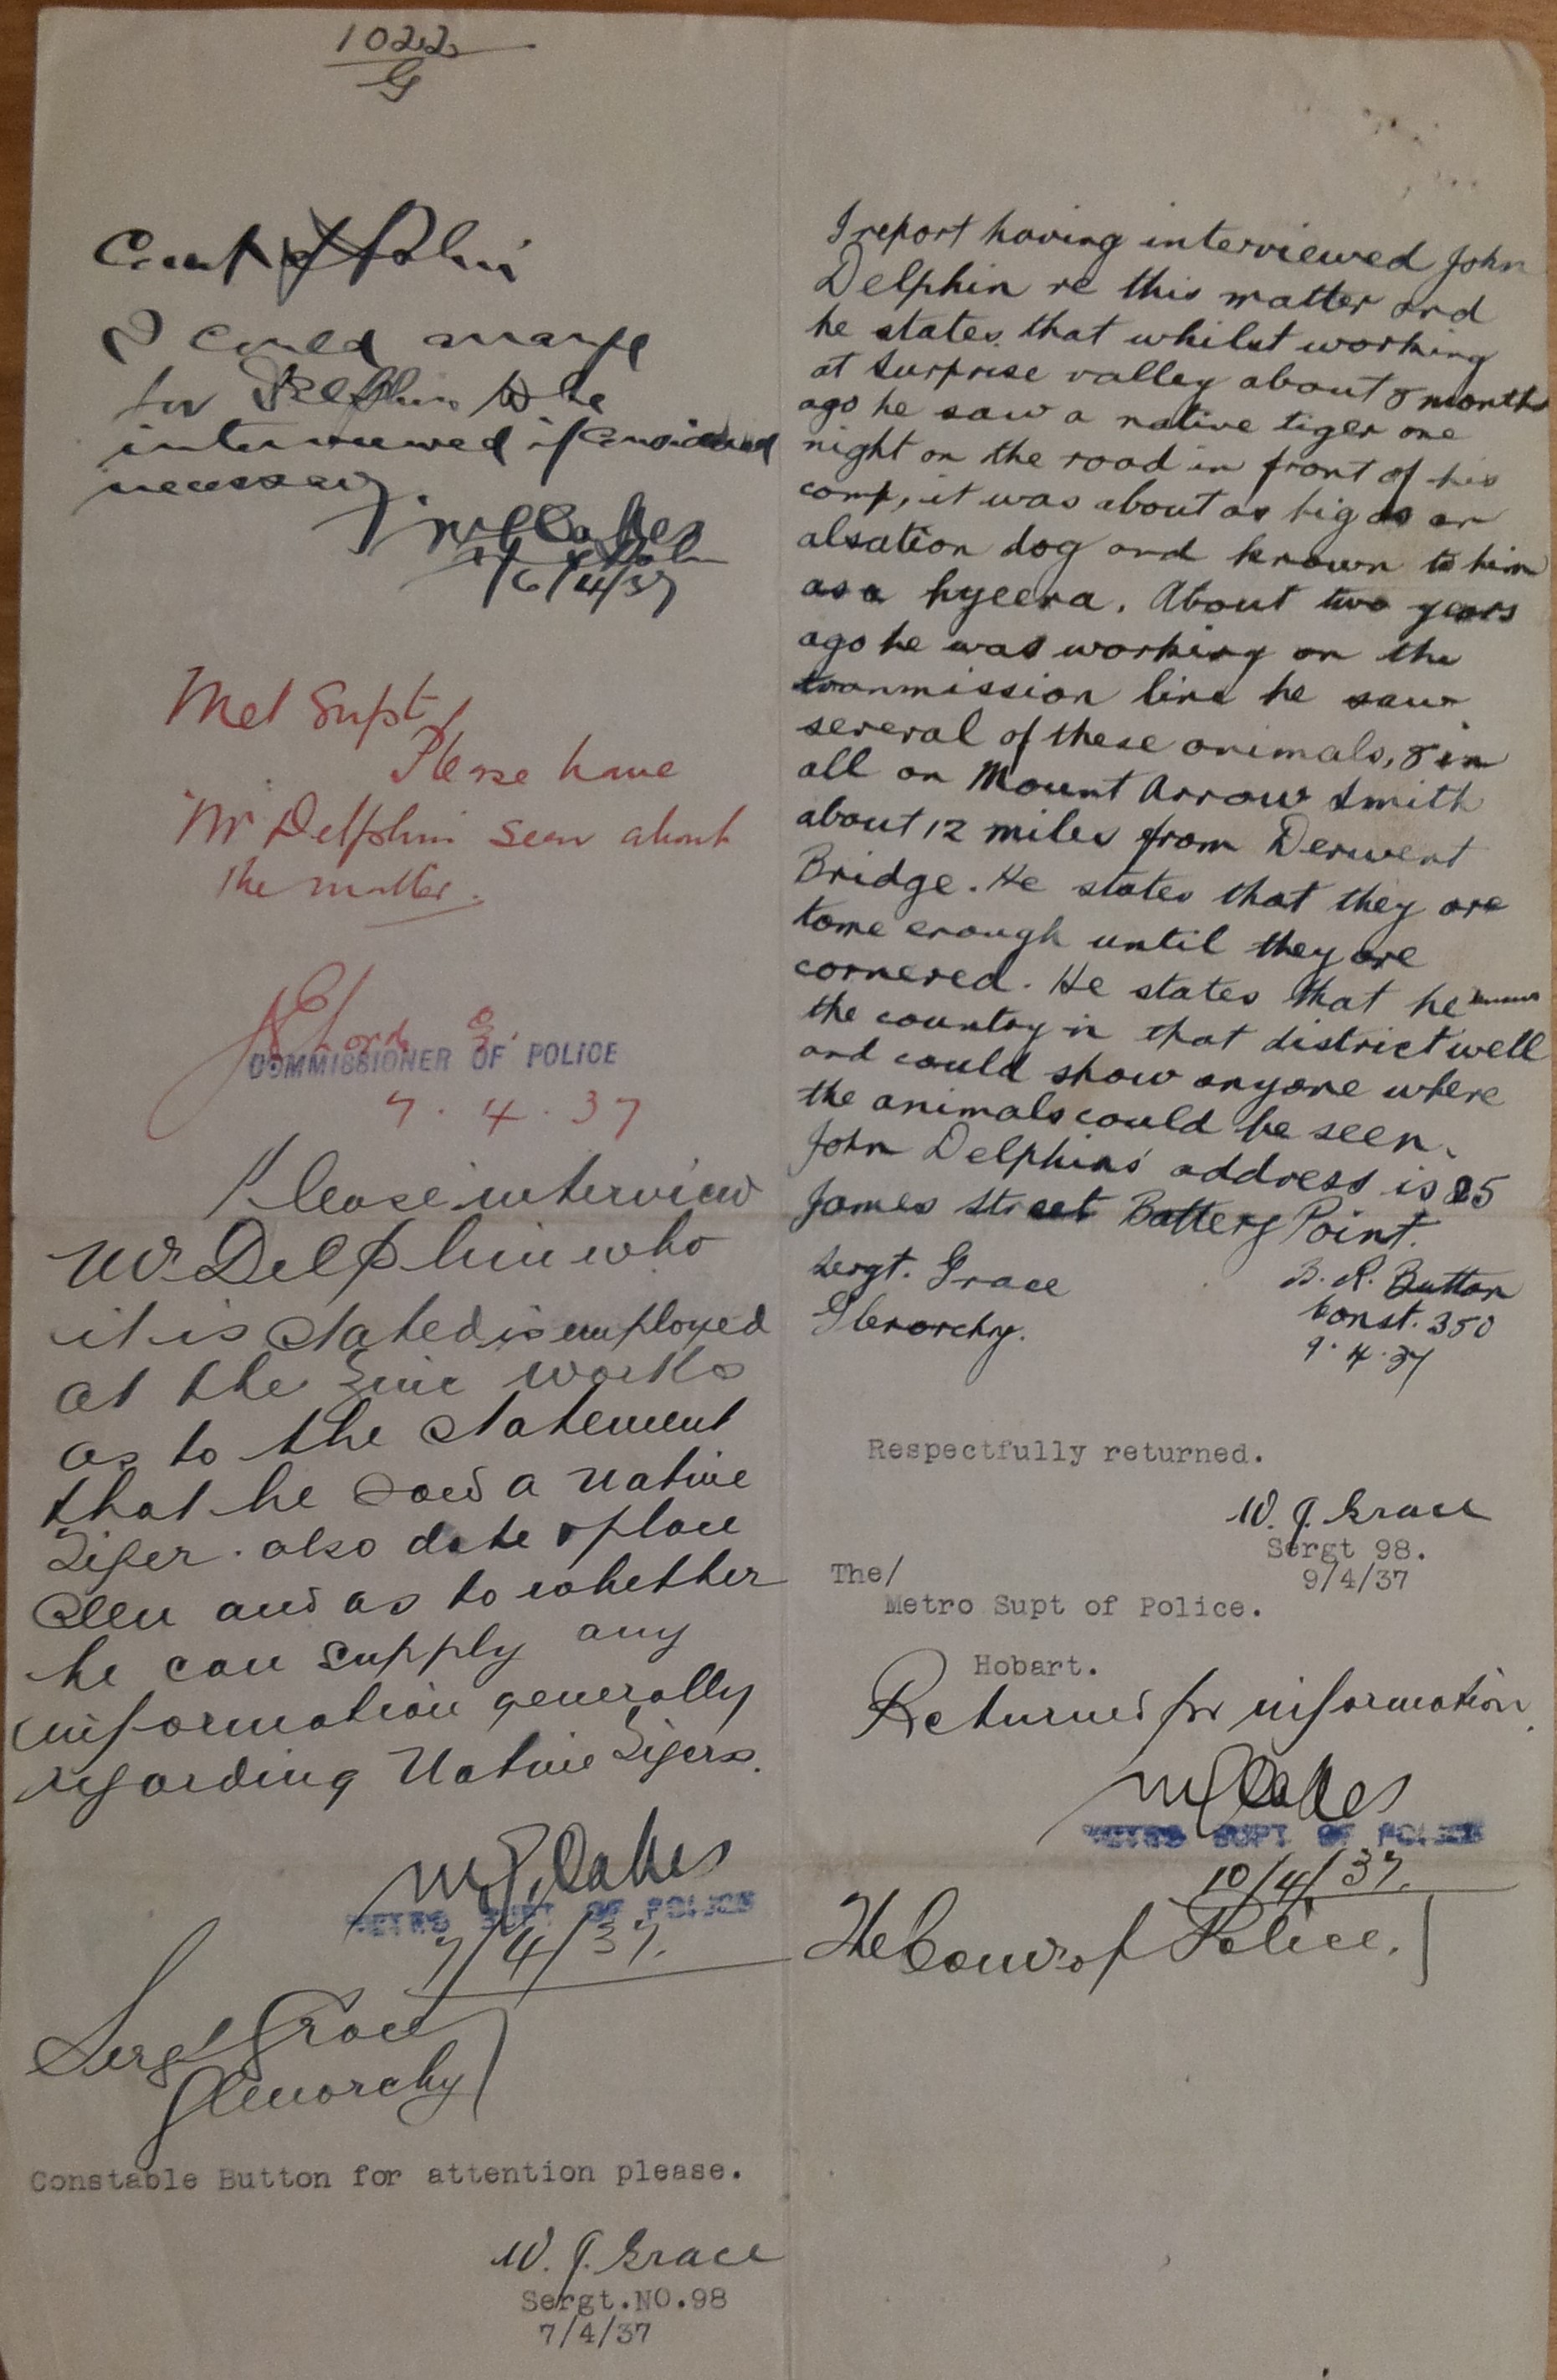 1022
G
Com of Police
I could arrange
for Delphin to be
interviewed if considered
necessary.
6/4/37
Met Supt/
Please have
Mr Delphin seen about
the matter.
J E Lord
COMMISSIONER OF POLICE
7.4.37
Please interview
Mr. Delphin who
it is stated is employed
at the Zinc works
as to the statement
that he saw a native
Tiger. also date & place
seen and as to whether
he can supply any
information generally
regarding Native Tigers.
METRO SUPT OF POLICE
7/4/37.
Sergt Grace
Glenorchy
Constable Button for attention please.
W. J. Grace
Sergt.NO.98
7/4/37
I report having interviewed John
Delphin re this matter and
he states that whilst working
at Surprise valley about 8 months
ago he saw a native tiger one
night on the road in front of his
camp, it was about as big as an
alsation dog and known to him
as a hyeena. About two years
ago he was working on the
tranmission line he saw
several of these animals, 8 in
all on Mount Arrow Smith
about 12 miles from Derwent
Bridge. He states that they are
tame enough until they are
cornered. He states that he knows
the country in that district well
and could show anyone where
the animals could be seen.
John Delphins' address is 25
James Street Battery Point.
Sergt. Grace
Glenorchy.
B. R. Button
Const. 350
9.4.37
Respectfully returned.
W. J. Grace
Sergt 98.
9/4/37
The/
Metro Supt of Police.
Hobart.
Returned for information.
METRO SUPT OF POLICE
10/4/37.
The Com of Police.